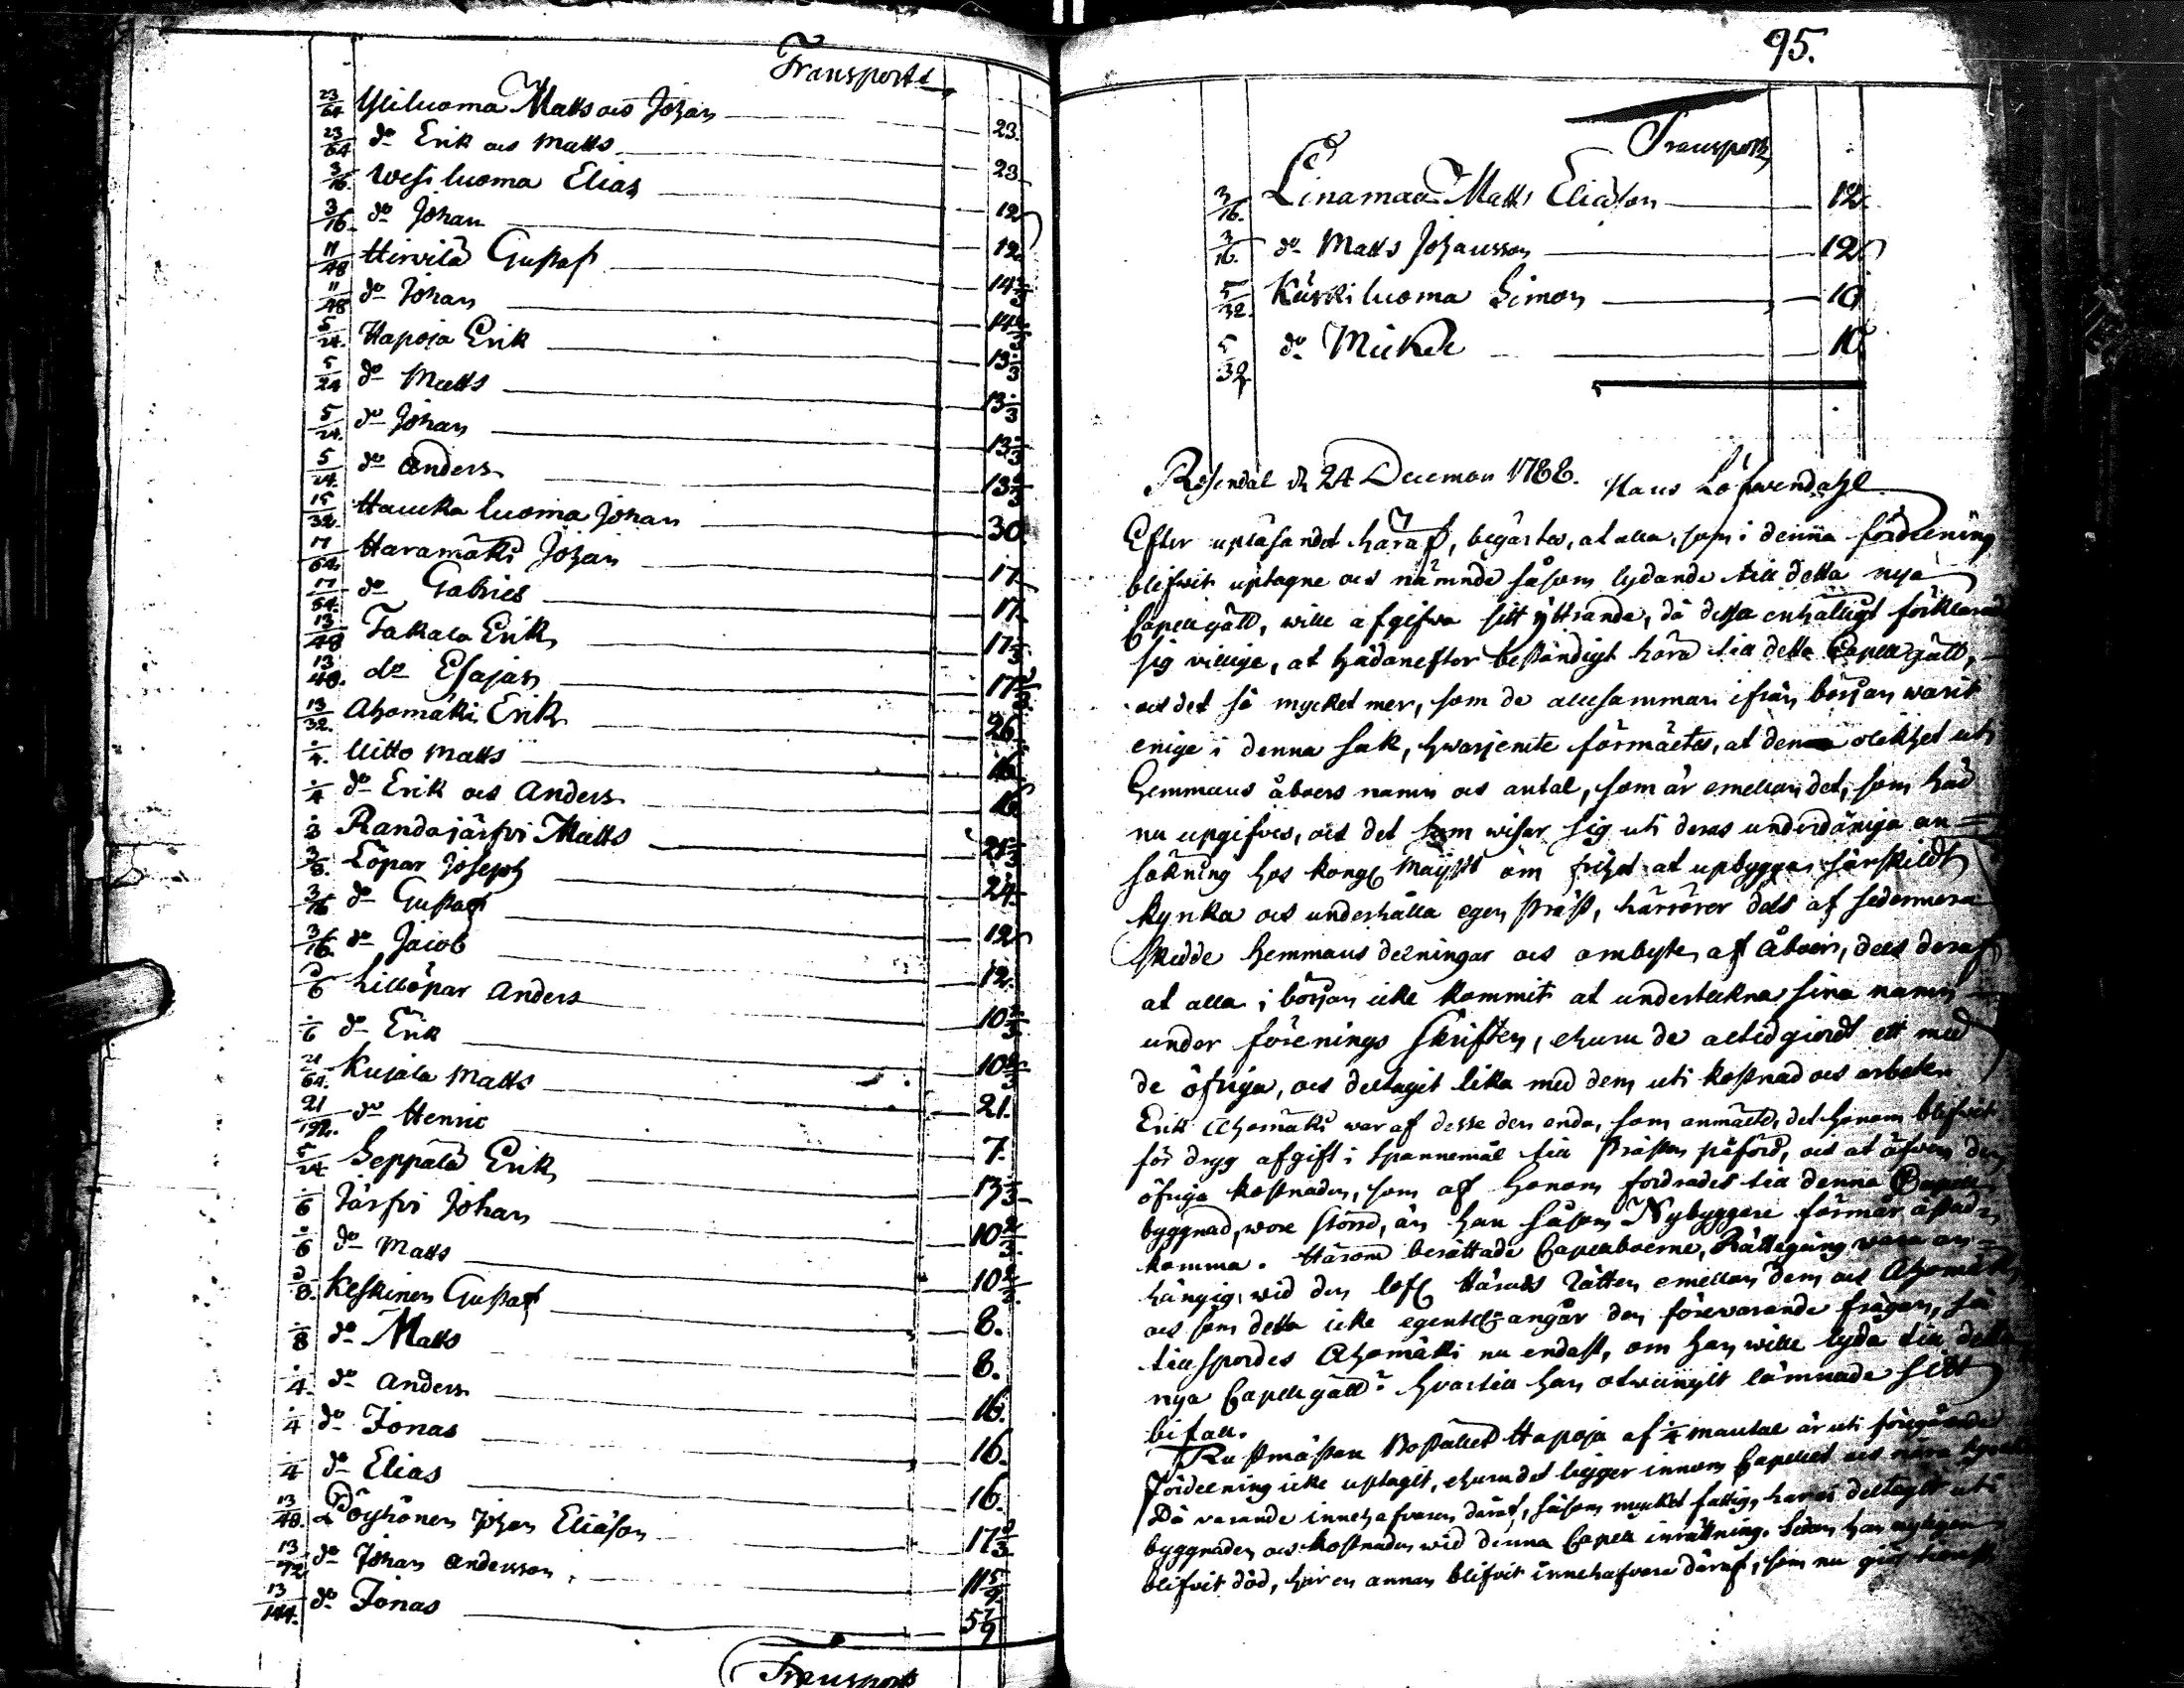 Transport
23/64 Yliluoma Matts och Johan 23.
23/64 do Erik och Matts 23.
3/16 Wesiluoma Elias 12
3/16 do Johan 12
11/48 Hirvilä Gustaf 14 2/3
11/48 do Johan 14 2/3
5/24 Hapoja Erik 13 1/3
5/24 do Matts 13 1/3
5/24 do Johan 13 1/3
5/24 do Anders 13 1/3
15/32 Hauckaluoma Johan 30
17/64 Haramäki Johan 17
17/64 do Gabriel 17
13/48 Takala Erik 17 1/3
13/48 do Esajas 17 1/3
13/32 Ahomäki Erik 26
1/4 Uitto Matts 16
1/4 do Erik och Anders 16
1/3 Randajärfvi Matts 21 1/3
3/8 Löpar Joseph 24
3/16 do Gustaf 12
3/16 do Jacob 12.
1/6 Lillöpar Anders 10 2/3
1/6 do Erik 10 2/3
21/64 Kujala Matts 21.
21/192 do Henric 7.
5/24 Seppälä Erik 13 1/3
1/6 Järfvi Johan 10 2/3
1/6 do Matts 10 2/3
1/8 Keskinen Gustaf 8.
1/8 do Matts 8.
1/4 do Anders 16.
1/4 do Jonas 16.
1/4 do Elias 16.
13/48 Pöyhönen Johan Eliäson 17 1/3
13/72 do Johan Andersson 11 5/9
13/144 do Jonas 5 7/9
Transport
95.
Transport
3/16 Linamaa Matts Eliäson 12.
3/16 do Matts Johansson 12
5/32 Käskiluoma Simon 10
5/32 do Mickel 10
Rosendal d 24 Decemb 1788. Hans Löfwendahl
Efter upläsandet häraf, begärtes, at alla, som i denna fördelning
blifwit uptagne och nämnde såsom lydande till detta nya
Capellgäll, wille afgifwa sitt yttrande, då dessa enhälligt förklarade
sig villige, at hädanefter beständigt höra till detta Capellgäll,
och det så mycket mer, som de allesamman ifrån början warit
enige i denna sak, hwarjemte förmältes, at den olikhet uti
Hemmans åboers namn och antal, som är emellan det, som här
nu upgifves, och det som wisar sig uti deras underdåniga an=
sökning hos Kongl Maijst om frihet at upbygga särskildt
kyrka och underhålla egen präst, härrörer dels af sedermera
skedde hemmans delningar och ombyten af Åboer, dels deraf
at alla i början icke kommit at underteckna sina namn
under förenings skriften, ehuru de altid giordt ett med
de öfriga, och deltagit lika med dem uti kostnad och arbeten
Erik Ahomäki war af desse den enda, som anmälte, det honom blifwit
för dryg afgift i Spannemål till Prästen påförd, och at äfwen den
öfriga kostnaden, som af honom fordrades till denna Capell
byggnad, wore större, än han såsom Nybyggare förmår åstad=
komma. Härom berättade Capellboerne, Rättegång vara an=
hängig wid den lofl Härads Rätten emellan dem och Ahomäki,
och som detta icke egentel. angår den förevarande frågan, så
tillspordes Ahomäki nu endast, om han wille lyda till detta
nya Capellgäll? hvartill han otwungit lämnade sitt
bifall.
Rustmästare Bostället Hapoja af 1/4 mantal är uti föregående
fördelning icke uptagit, ehuru det ligger innom Capellet och nära
Då varande innehafvaren däraf, såsom mycket fattig, har ei deltagit uti
byggnaden och kostnaden wid denna Capell inrättning. Sedan han nyligen
blifvit död, har en annan blifvit innehafvare däraf, som nu